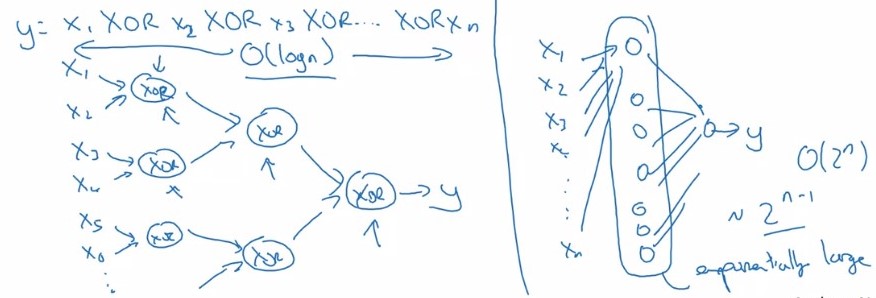 y = x₁ XOR x₂ XOR x₃ XOR.... XOR xₙ
O(log n)
x₁
x₂
XOR
XOR
x₃
x₄
XOR
XOR → y
x₅
x₆
XOR
XOR
⋮
x₁
x₂
x₃
x₄
⋮
xₙ
y
O(2ⁿ)
~ 2ⁿ⁻¹
exponentially large